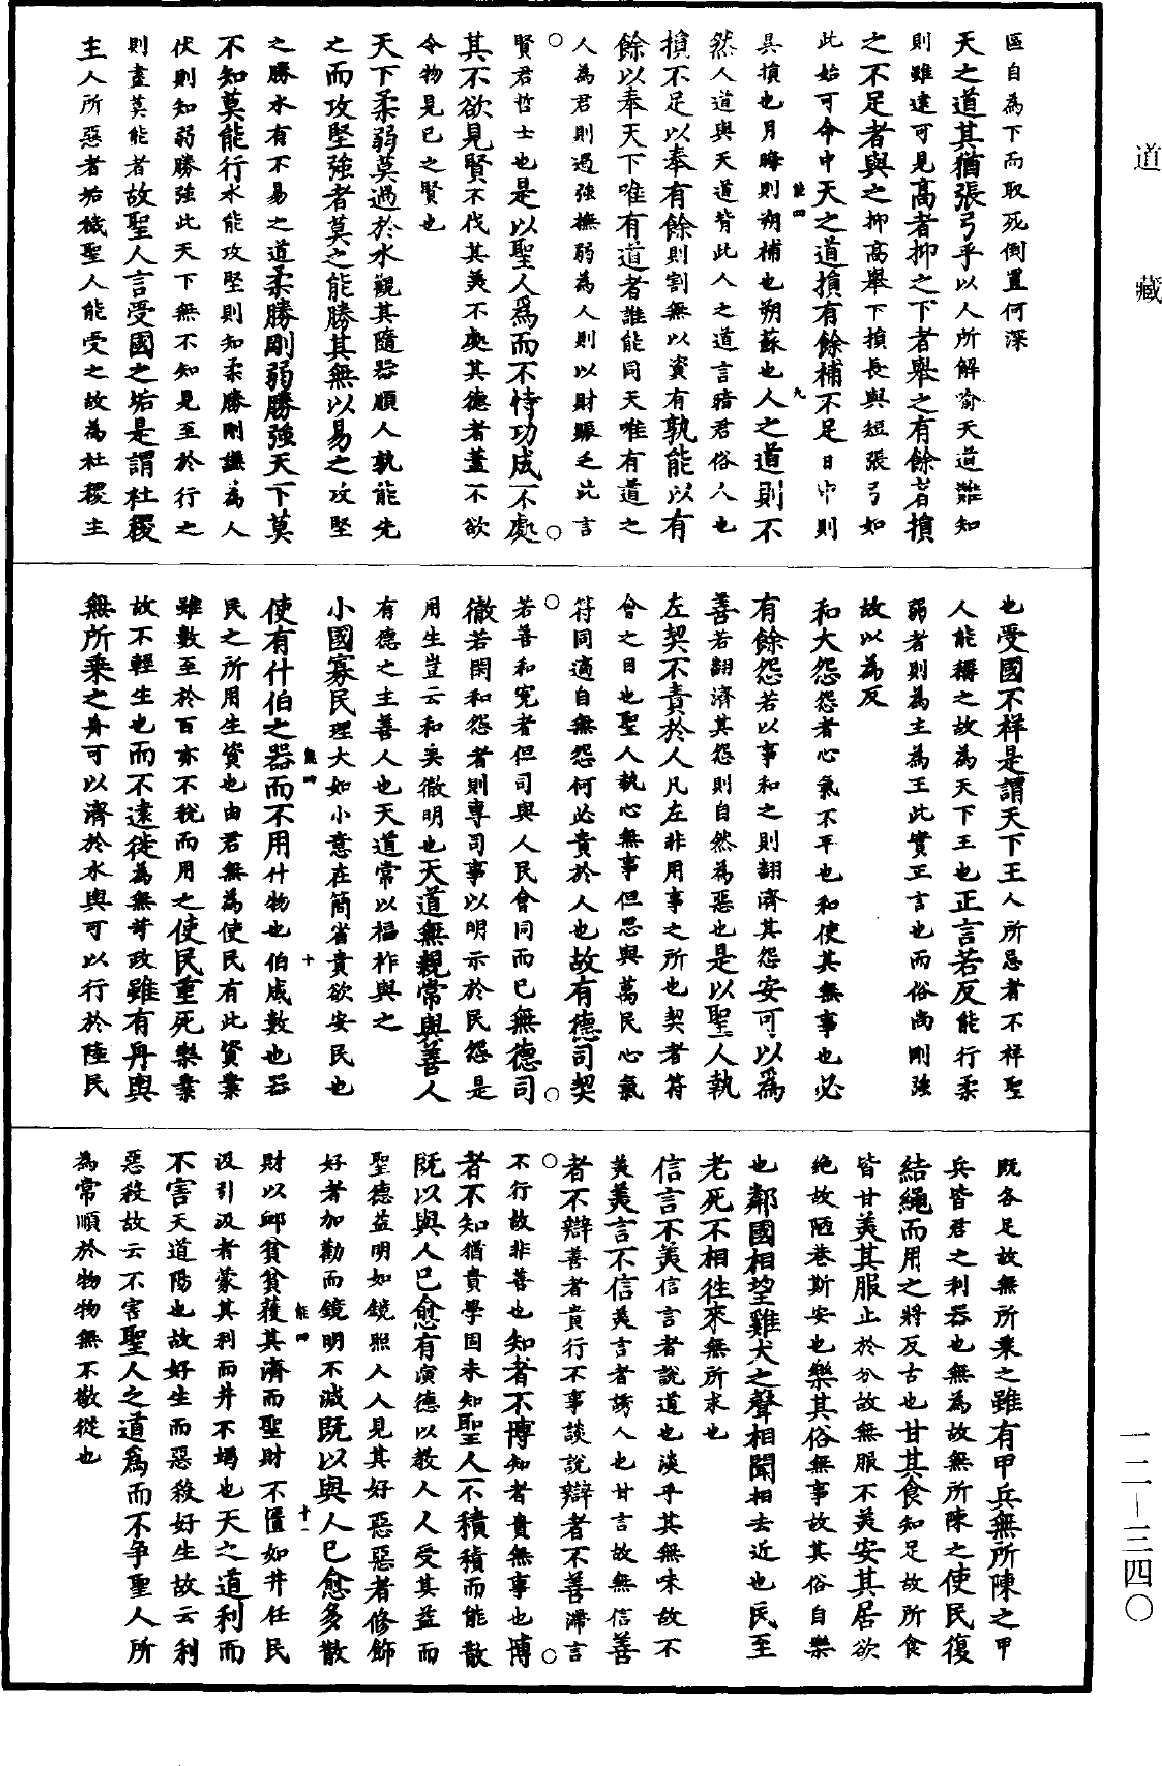 道藏
區自為下而取死倒置何深
天之道其猶張弓乎以人所解喻天道難知
則雖遠可見高者抑之下者舉之有餘者損
之不足者與之抑高舉下損長與短張弓如
此始可命中天之道損有餘補不足日中則
能四
九
昃損也月晦則朔補也朔蘇也人之道則不
然人道與天道背此人之道言暗君俗人也
損不足以奉有餘則割無以資有孰能以有
餘以奉天下唯有道者誰能同天唯有道之
人為君則遏強撫弱為人則以財賑乏此言
賢君哲士也是以聖人為而不恃功成不處
其不欲見賢不伐其美不處其德者蓋不欲
令物見已之賢也
天下柔弱莫過於水觀其隨器順人孰能先
之而攻堅強者莫之能勝其無以易之攻堅
之勝水有不易之道柔勝剛弱勝強天下莫
不知莫能行水能攻堅則知柔勝剛謙為人
伏則知弱勝強此天下無不知見至於行之
則盡莫能者故聖人言受國之垢是謂社稷
主人所惡者垢穢聖人能受之故為社稷主
也受國不祥是謂天下王人所忌者不祥聖
人能稱之故為天下王也正言若反能行柔
弱者則為主為王此實正言也而俗尚剛強
故以為反
和大怨怨者心氣不平也和使其無事也必
有餘怨若以事和之則翻濟其怨安可以為
善若翻濟其怨則自然為惡也是以聖人執
左契不責於人凡左非用事之所也契者符
合之目也聖人執心無事但思與萬民心氣
符同適自無怨何必責於人也故有德司契
若善和冤者但司與人民會同而已無德司
徹若閑和怨者則專司事以明示於民怨是
用生豈云和矣徹明也天道無親常與善人
有德之主善人也天道常以福祚與之
小國寡民理大如小意在簡省貴欲安民也
能四
十
使有什伯之器而不用什物也伯成數也器
民之所用生資也由君無為使民有此資業
雖數至於百亦不稅而用之使民重死樂業
故不輕生也而不遠徙為無苛政雖有舟輿
無所乘之舟可以濟於水輿可以行於陸民
既各足故無所乘之雖有甲兵無所陳之甲
兵皆君之利器也無為故無所陳之使民復
結繩而用之將反古也甘其食知足故所食
皆甘美其服止於分故無服不美安其居欲
絶故陋巷斯安也樂其俗無事故其俗自樂
也鄰國相望雞犬之聲相聞相去近也民至
老死不相往來無所求也
信言不美信言者說道也淡乎其無味故不
美美言不信美言者誘人也甘言故無信善
者不辯善者貴行不事談說辯者不善滯言
不行故非善也知者不博知者貴無事也博
者不知猶貴學因未知聖人不積積而能散
既以與人已愈有演德以教人人受其益而
聖德益明如鏡照人人見其好惡惡者修飾
好者加勸而鏡明不減既以與人已愈多散
能四
十一
財以卹貧貧獲其濟而聖財不匱如井任民
汲引汲者蒙其利而井不竭也天之道利而
不害天道陽也故好生而惡殺好生故云利
惡殺故云不害聖人之道為而不爭聖人所
為常順於物物無不徹從也
一二－三四〇